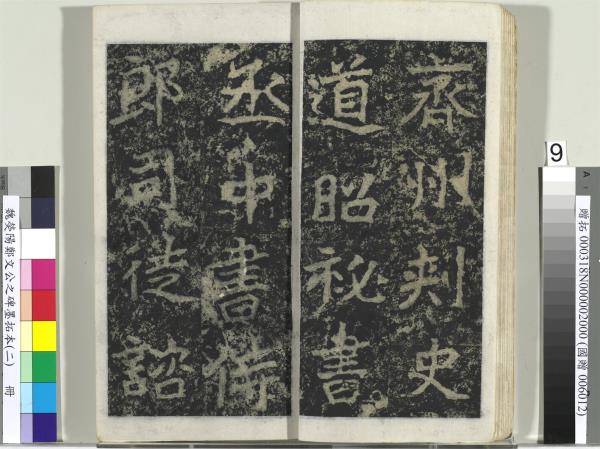 齊州刾史
道昭祕書
丞中書侍
郎司徒諮
9
魏熒陽鄭文公之碑墨拓本(二) 冊
贈拓 000318N000002000 (國贈 006012)
A